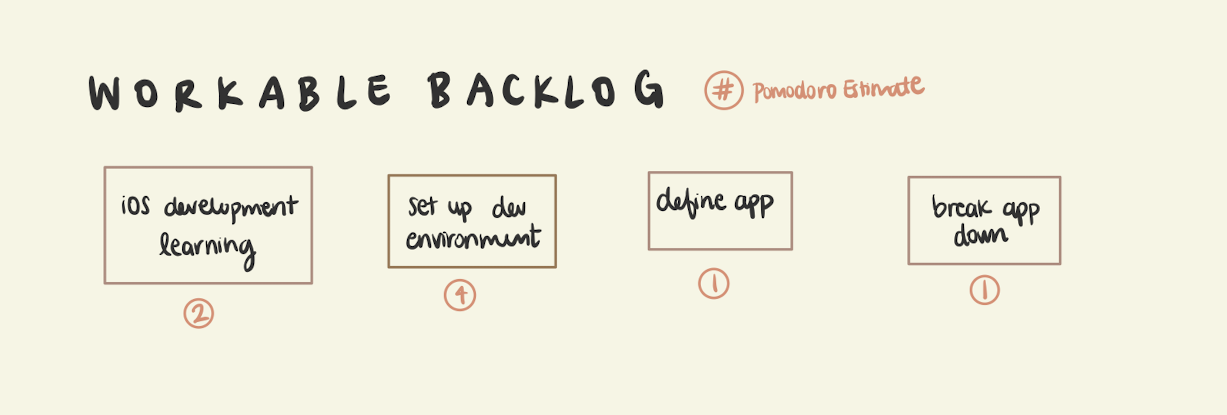 WORKABLE BACKLOG # Pomodoro Estimate
iOS development
learning
2
set up dev
environment
4
define app
1
break app
down
1